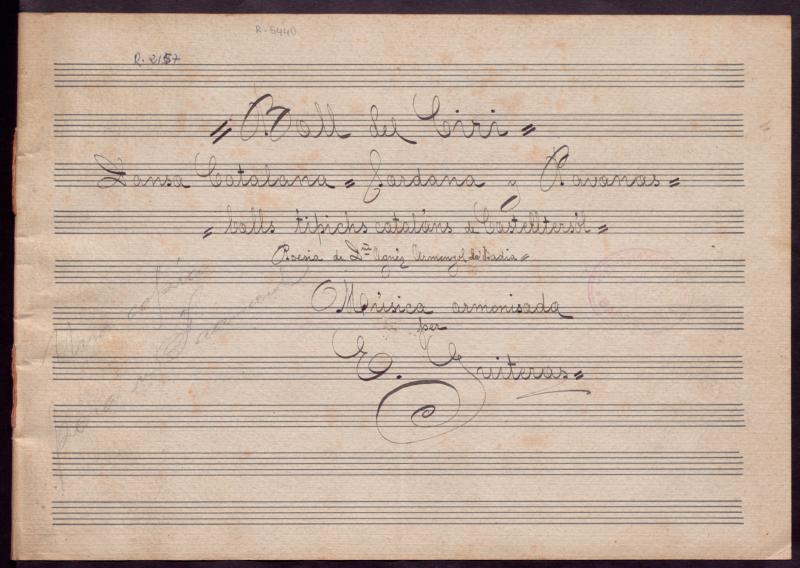 R-5440
R. 2157
= Ball del Ciri =
Dansa Catalana = Sardana y Pavanas =
= balls tipichs catalans de Castelltersol =
Poesia de Dña Agnés Armengol de Badia =
Música armonisada
per
E. Guiteras =